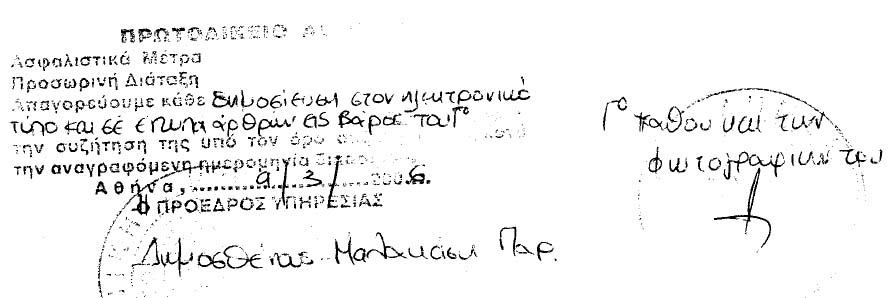 ΠΡΩΤΟΔΙΚΕΙΟ
Ασφαλιστικά Μέτρα
Προσωρινή Διάταξη
Απαγορεύουμε κάθε δημοσίευση στον ηλεκτρονικό
τύπο και σε έντυπα άρθρων εις βάρος του Γ°
την συζήτηση της υπό τον όρο
την αναγραφόμενη ημερομηνία
Αθήνα, 9/3/2006
Ο ΠΡΟΕΔΡΟΣ ΥΠΗΡΕΣΙΑΣ
Δημοσθένους Μαλακάση Παρ.
Γ° παθου και των
φωτογραφιών του